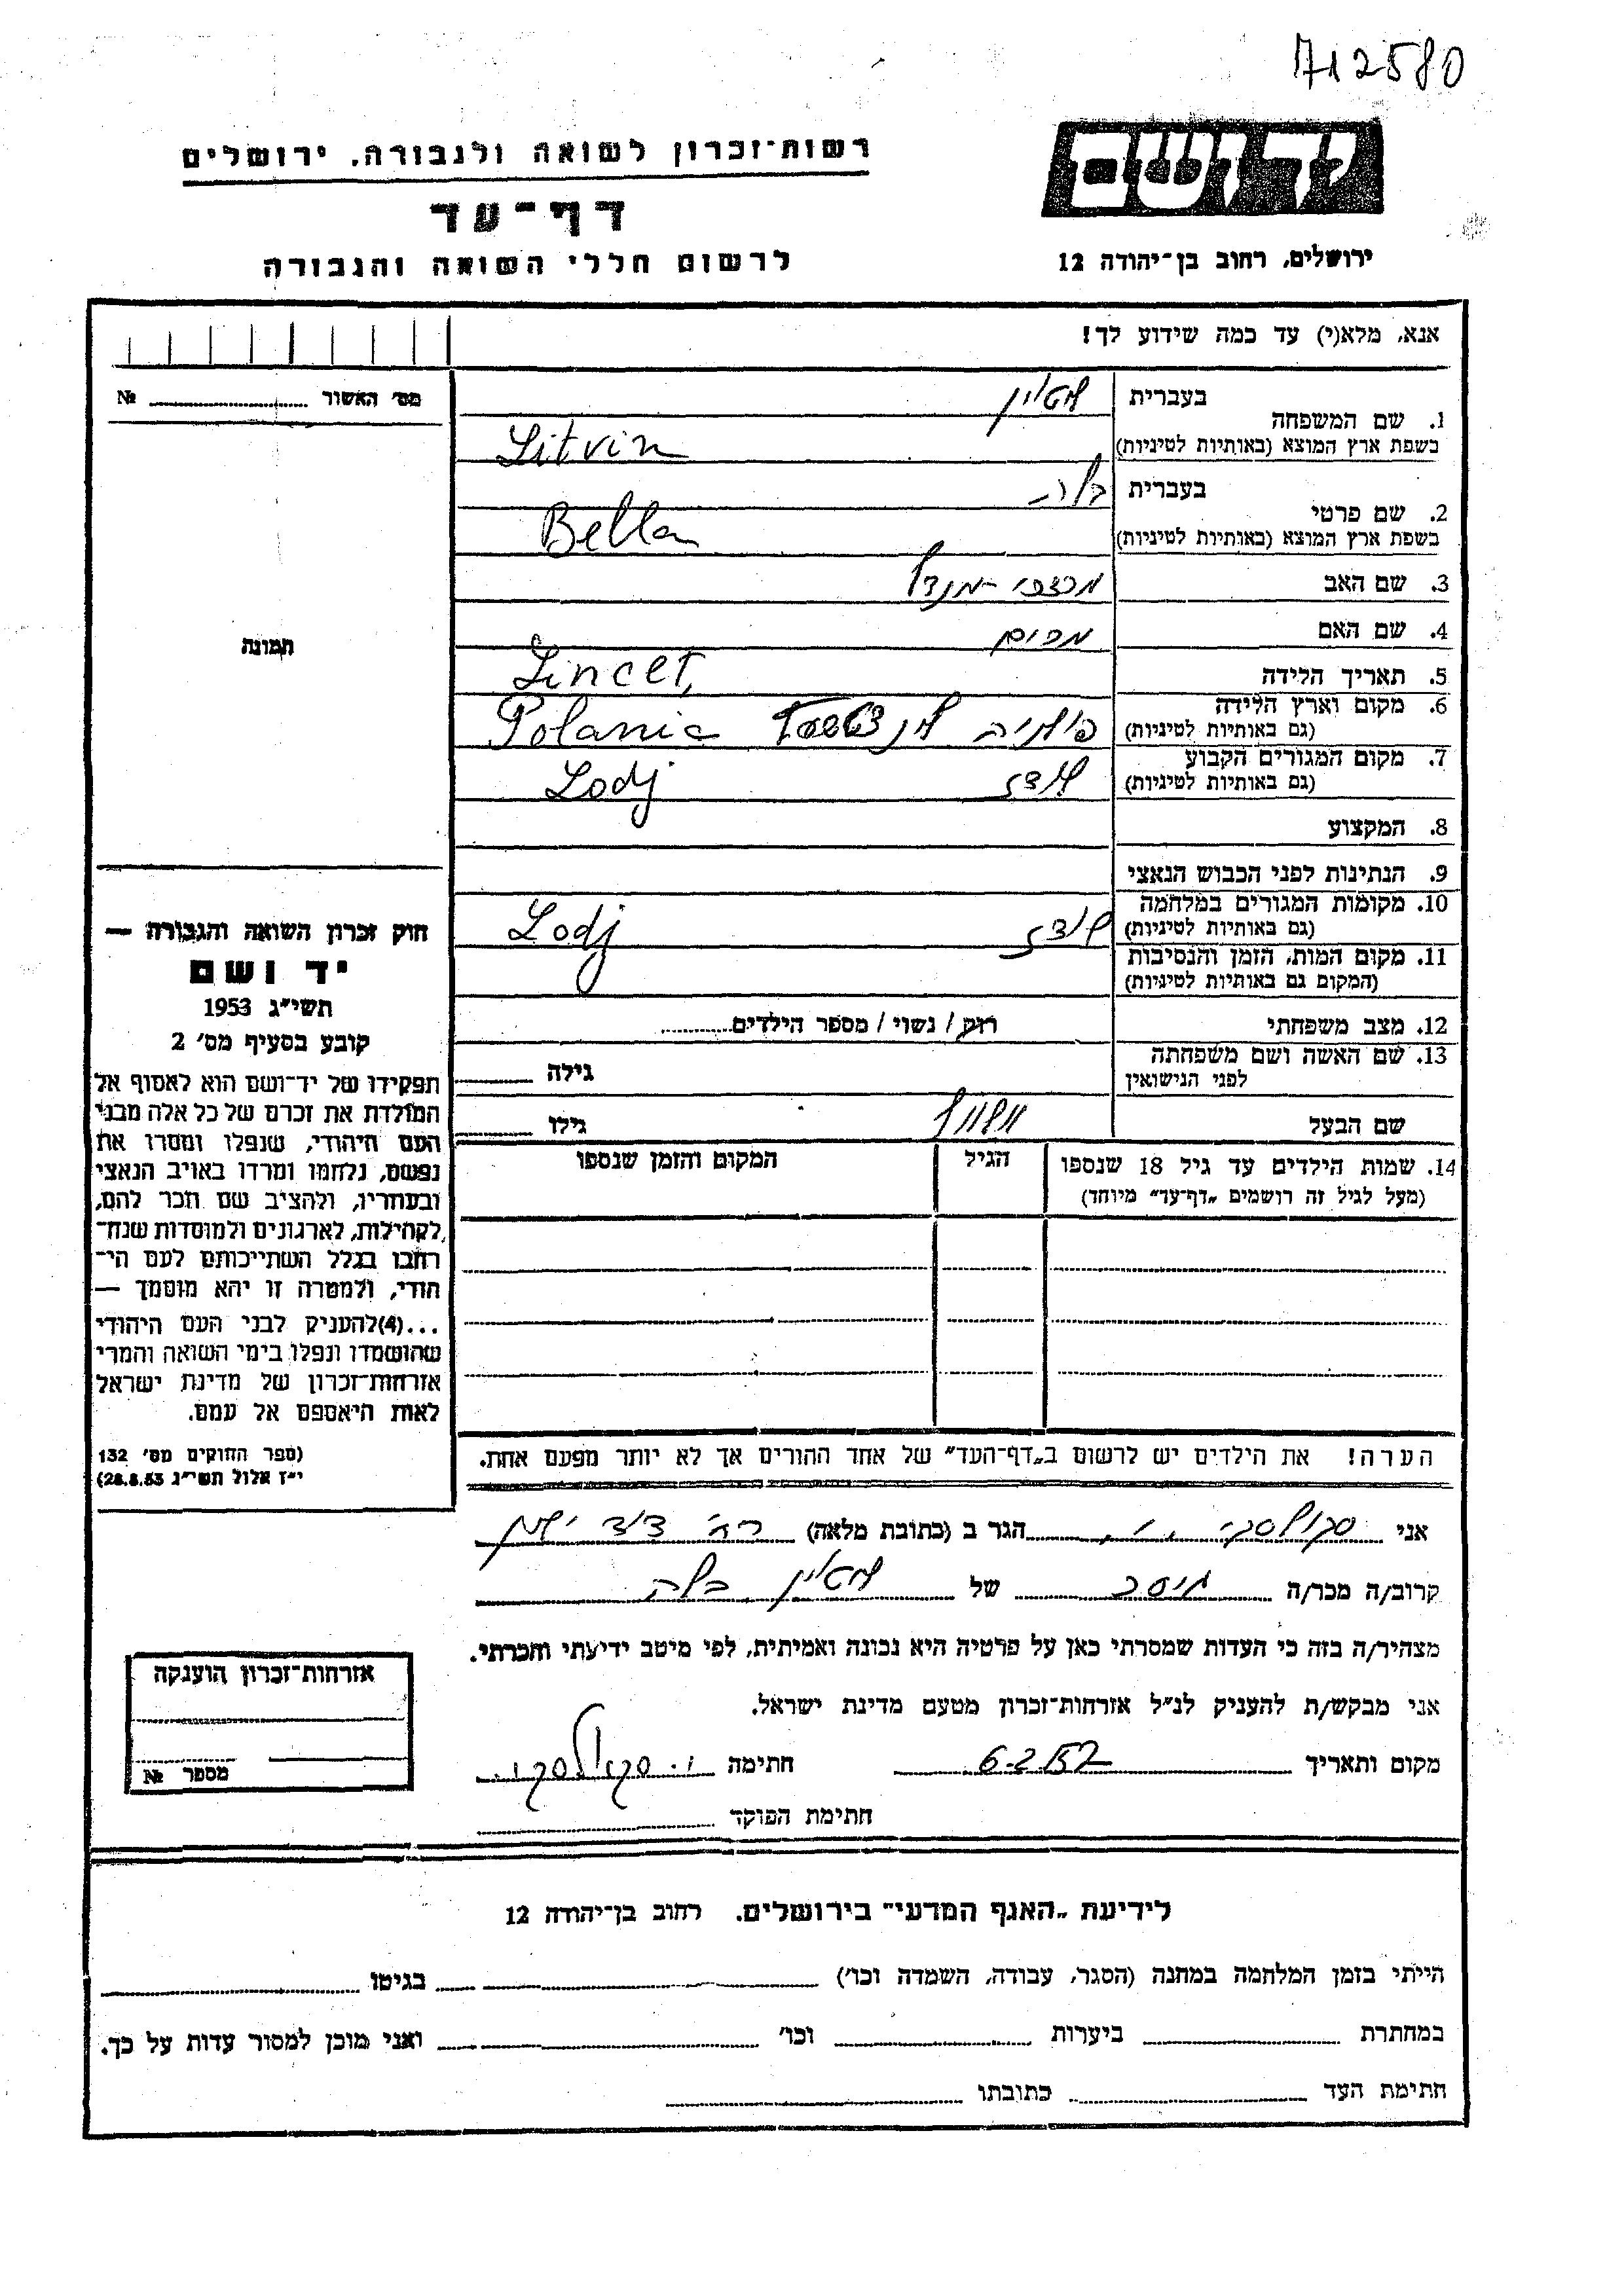 712580
יד ושם
רשות־זכרון לשואה ולגבורה, ירושלים
דף־עד
לרשום חללי השואה והגבורה
ירושלים, רחוב בן־יהודה 12
אנא, מלא(י) עד כמה שידוע לך!
מס׳ האשור № 
תמונה
1. שם המשפחה
בעברית ליטוין
בשפת ארץ המוצא (באותיות לטיניות) Litvin
2. שם פרטי
בעברית בלה
בשפת ארץ המוצא (באותיות לטיניות) Bella
3. שם האב מנדל
4. שם האם מרים
5. תאריך הלידה
6. מקום וארץ הלידה
(גם באותיות לטיניות) פולניה Lincet, Polania
7. מקום המגורים הקבוע
(גם באותיות לטיניות) לודז Lodj
8. המקצוע
9. הנתינות לפני הכבוש הנאצי
10. מקומות המגורים במלחמה
(גם באותיות לטיניות) לודז Lodj
11. מקום המות, הזמן והנסיבות
(המקום גם באותיות לטיניות)
12. מצב משפחתי רווק / נשוי / מספר הילדים
13. שם האשה ושם משפחתה
לפני הנישואין
גילה
שם הבעל
גילו
14. שמות הילדים עד גיל 18 שנספו
(מעל לגיל זה רושמים „דף־עד״ מיוחד)
הגיל
המקום והזמן שנספו
חוק זכרון השואה והגבורה —
יד ושם
תשי״ג 1953
קובע בסעיף מס׳ 2
תפקידו של יד־ושם הוא לאסוף אל
המולדת את זכרם של כל אלה מבני
העם היהודי, שנפלו ומסרו את
נפשם, נלחמו ומרדו באויב הנאצי
ובעוזריו, ולהציב שם וזכר להם,
לקהילות, לארגונים ולמוסדות שנח־
רבו בגלל השתייכותם לעם הי־
הודי, ולמטרה זו יהא מוסמך —
...(4)להעניק לבני העם היהודי
שהושמדו ונפלו בימי השואה והמרי
אזרחות־זכרון של מדינת ישראל
לאות היאספם אל עמם.
(ספר החוקים מס׳ 132
י״ז אלול תשי״ג 28.8.53)
הערה! את הילדים יש לרשום ב„דף־העד״ של אחד ההורים אך לא יותר מפעם אחת.
אני הגר ב (כתובת מלאה) רח׳
קרוב/ה מכר/ה גיסה של ליטוין בלה
מצהיר/ה בזה כי העדות שמסרתי כאן על פרטיה היא נכונה ואמיתית, לפי מיטב ידיעתי והכרתי.
אני מבקש/ת להעניק לנ״ל אזרחות־זכרון מטעם מדינת ישראל.
מקום ותאריך 6.2.57 חתימה
חתימת הפוקד
אזרחות־זכרון הוענקה
מספר №
לידיעת „האגף המדעי״ בירושלים, רחוב בן־יהודה 12
הייתי בזמן המלחמה במחנה (הסגר, עבודה, השמדה וכו׳) בגיטו
במחתרת ביערות וכו׳ ואני מוכן למסור עדות על כך.
חתימת העד כתובתו